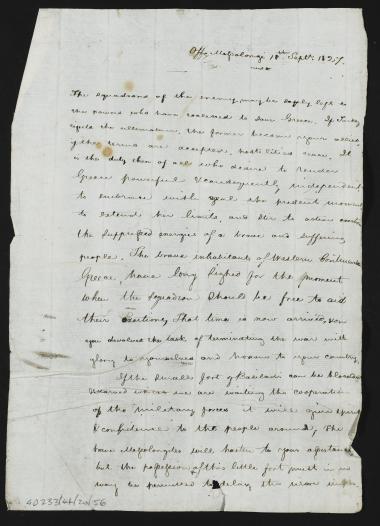 Off Mesolongi 18th Septr. 1827.
The squadrons of the enemy may be safely left to
the powers who have resolved to save Greece. If Turkey
rejects the alternative, the former become your allies,
if the terms are accepted, hostilities cease. It
is the duty then of all who desire to render
Greece powerful & consequently, independent
to embrace with zeal the present moment
to extend her limits, and stir to action
the suppressed energies of a brave and suffering
people. The brave inhabitants of Western Continental
Greece, have long sighed for the moment
when the squadron should be free to aid
their exertions, That time is now arrived,
you devolves the task of terminating the war with
glory to yourselves and honor to your country.
If the small fort of Basiladi can be
we are waiting the cooperation
of the military forces it will give spirit
& confidence to the people around, The
brave Mesolongites will hasten to your assistance
but the possession of this little fort must in no
way be permitted to delay the more
40233/44/20/56